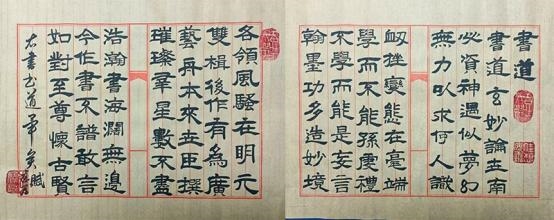 書道
書道玄妙論世南
必資神遇似夢幻
無力以求何人識
衄挫變態在毫端
學而不能孫虔禮
不學而能是妄言
翰墨功多造妙境
各領風騷在明元
雙楫後作有為廣
藝舟本來世臣撰
璀璨羣星數不盡
浩瀚書海濶無邊
今作書不譜敢言
如對至尊懷古賢
右書書道